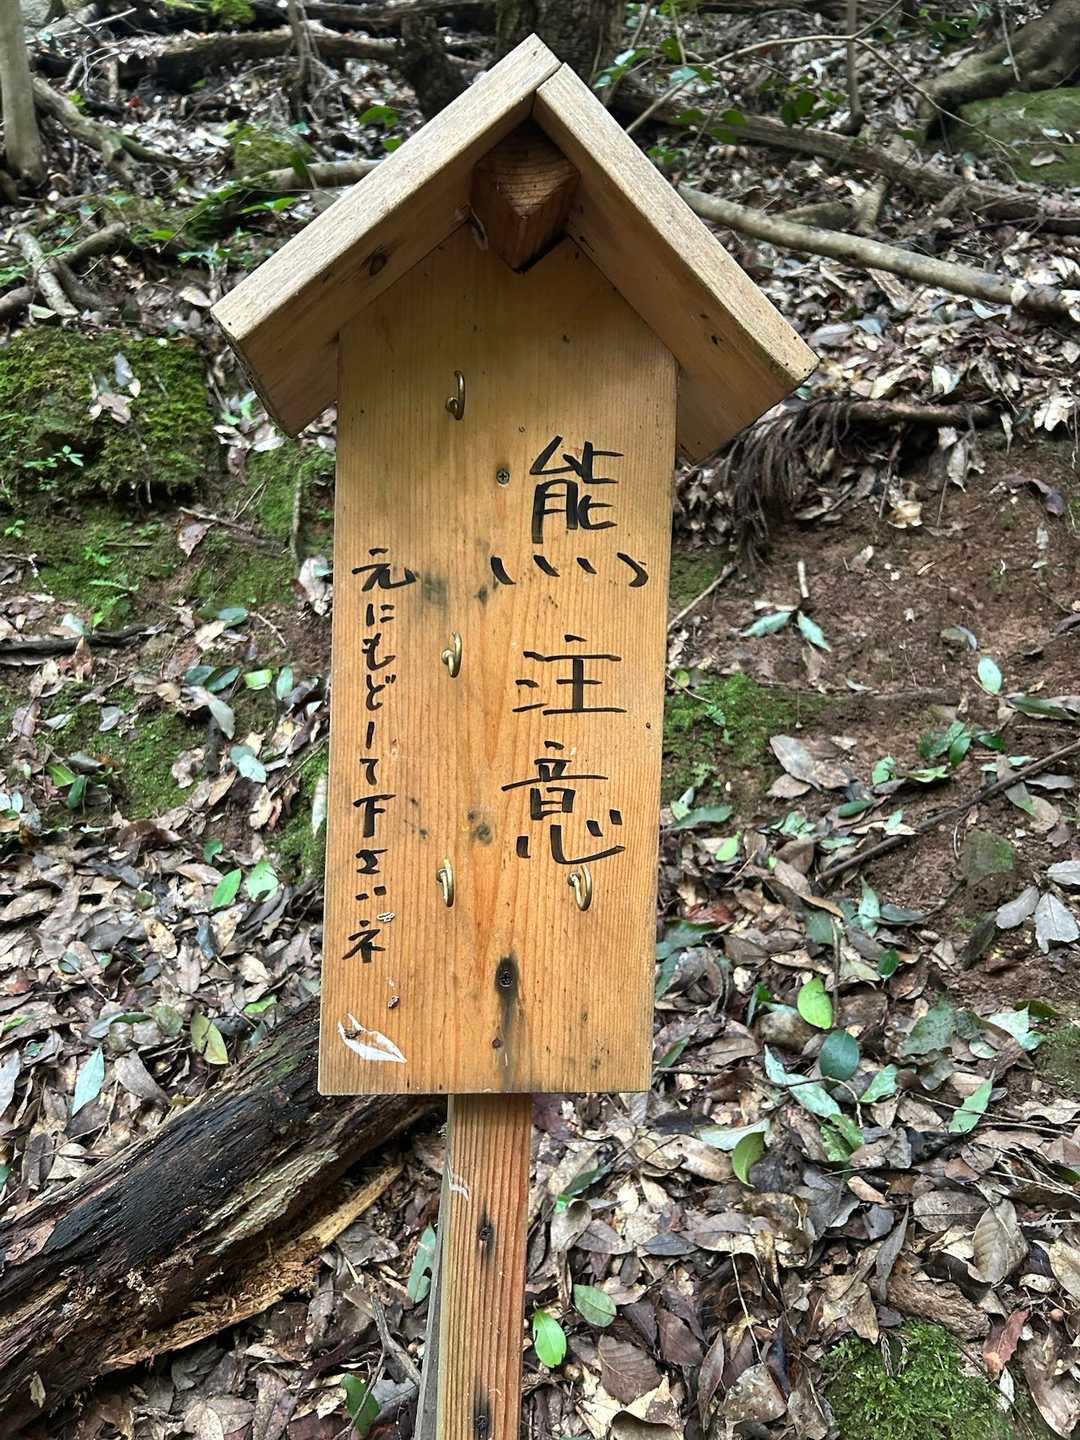 熊注意
元にもどーて下さいネ